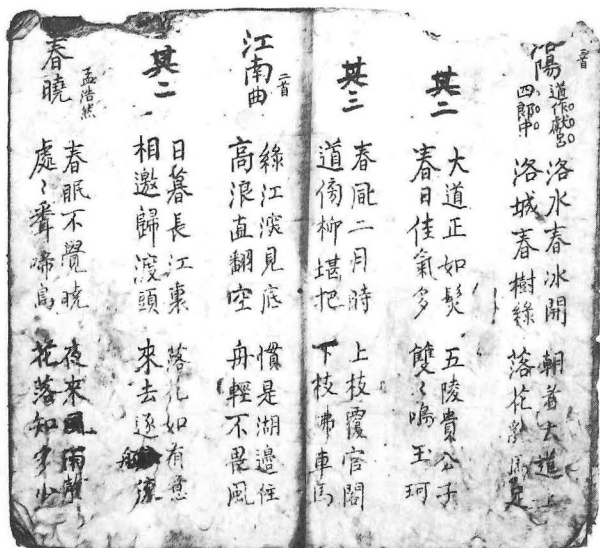 洛陽
三首
道作獻呂
四郎中
洛水春冰開 朝看大道上
洛城春樹綠 落花亂馬足
其二
大道正如髮 五陵貴公子
春日佳氣多 雙〻鳴玉珂
其三
春風二月時 上枝覆官閣
道傍柳堪把 下枝拂車馬
江南曲
二首
綠江深見底 慣是湖邊住
高浪直翻空 舟輕不畏風
其二
日暮長江裏 落花如有意
相邀歸渡頭 來去逐船
春曉
孟浩然
春眠不覺曉 夜來風雨聲
處〻聞啼鳥 花落知多少